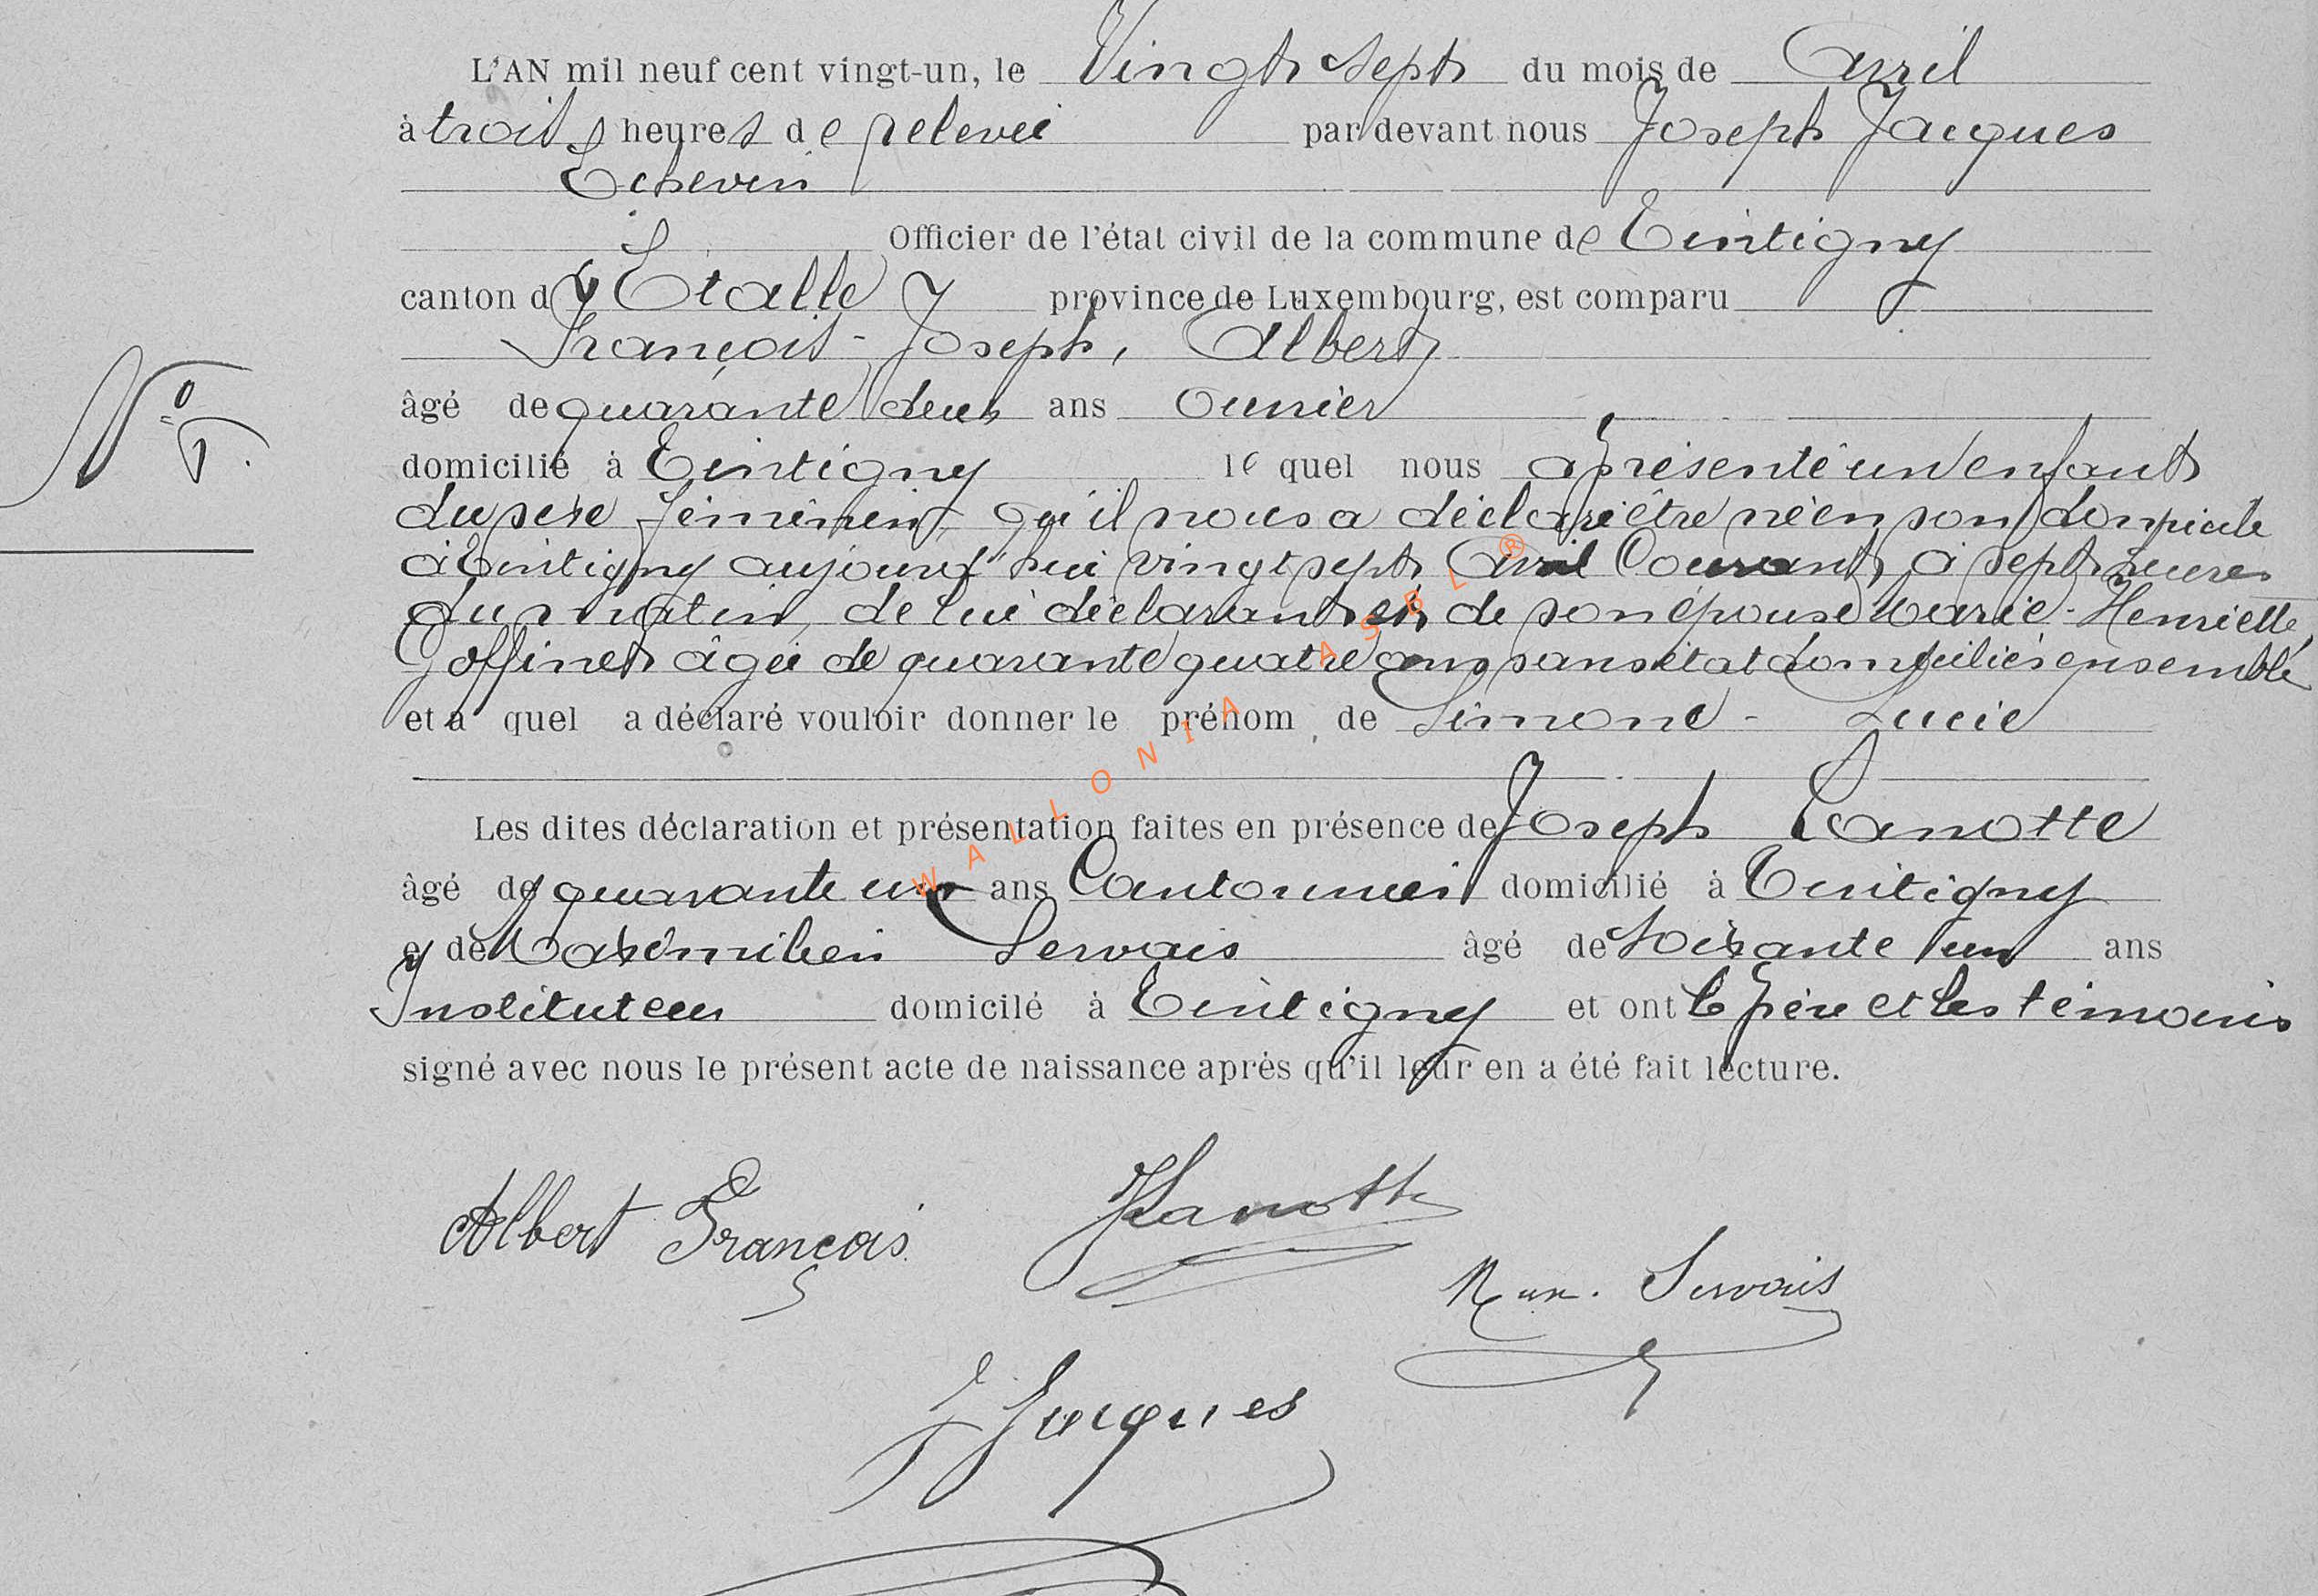 L'AN mil neuf cent vingt-un, le Vingt sept du mois de Avril
à trois heures de relevée par devant nous Joseph Jacques
Echevin
Officier de l'état civil de la commune de Tintigny
canton d'Etalle province de Luxembourg, est comparu
François-Joseph, Albert
âgé de quarante deux ans Ouvrier
N°
domicilié à Tintigny lequel nous a présenté un enfant
du sexe féminin, qu'il nous a déclaré être né en son domicile
à Tintigny aujourd'hui vingt sept Avril Courant, à sept heures
du matin, de lui déclarant et de son épouse Marie-Henriette,
Goffinet âgée de quarante quatre ans sans état domiciliés ensemble
et a quel a déclaré vouloir donner le prénom de Simone - Lucie
Les dites déclaration et présentation faites en présence de Joseph Lanotte
âgé de quarante un ans Cantonnier domicilié à Tintigny
& de Maximilien Servais âgé de soixante un ans
Instituteur domicilé à Tintigny et ont le père et les témoins
signé avec nous le présent acte de naissance après qu'il leur en a été fait lecture.
WALLONIA ASBL ®
Albert François
JLanotte
Max. Servais
J Jacques